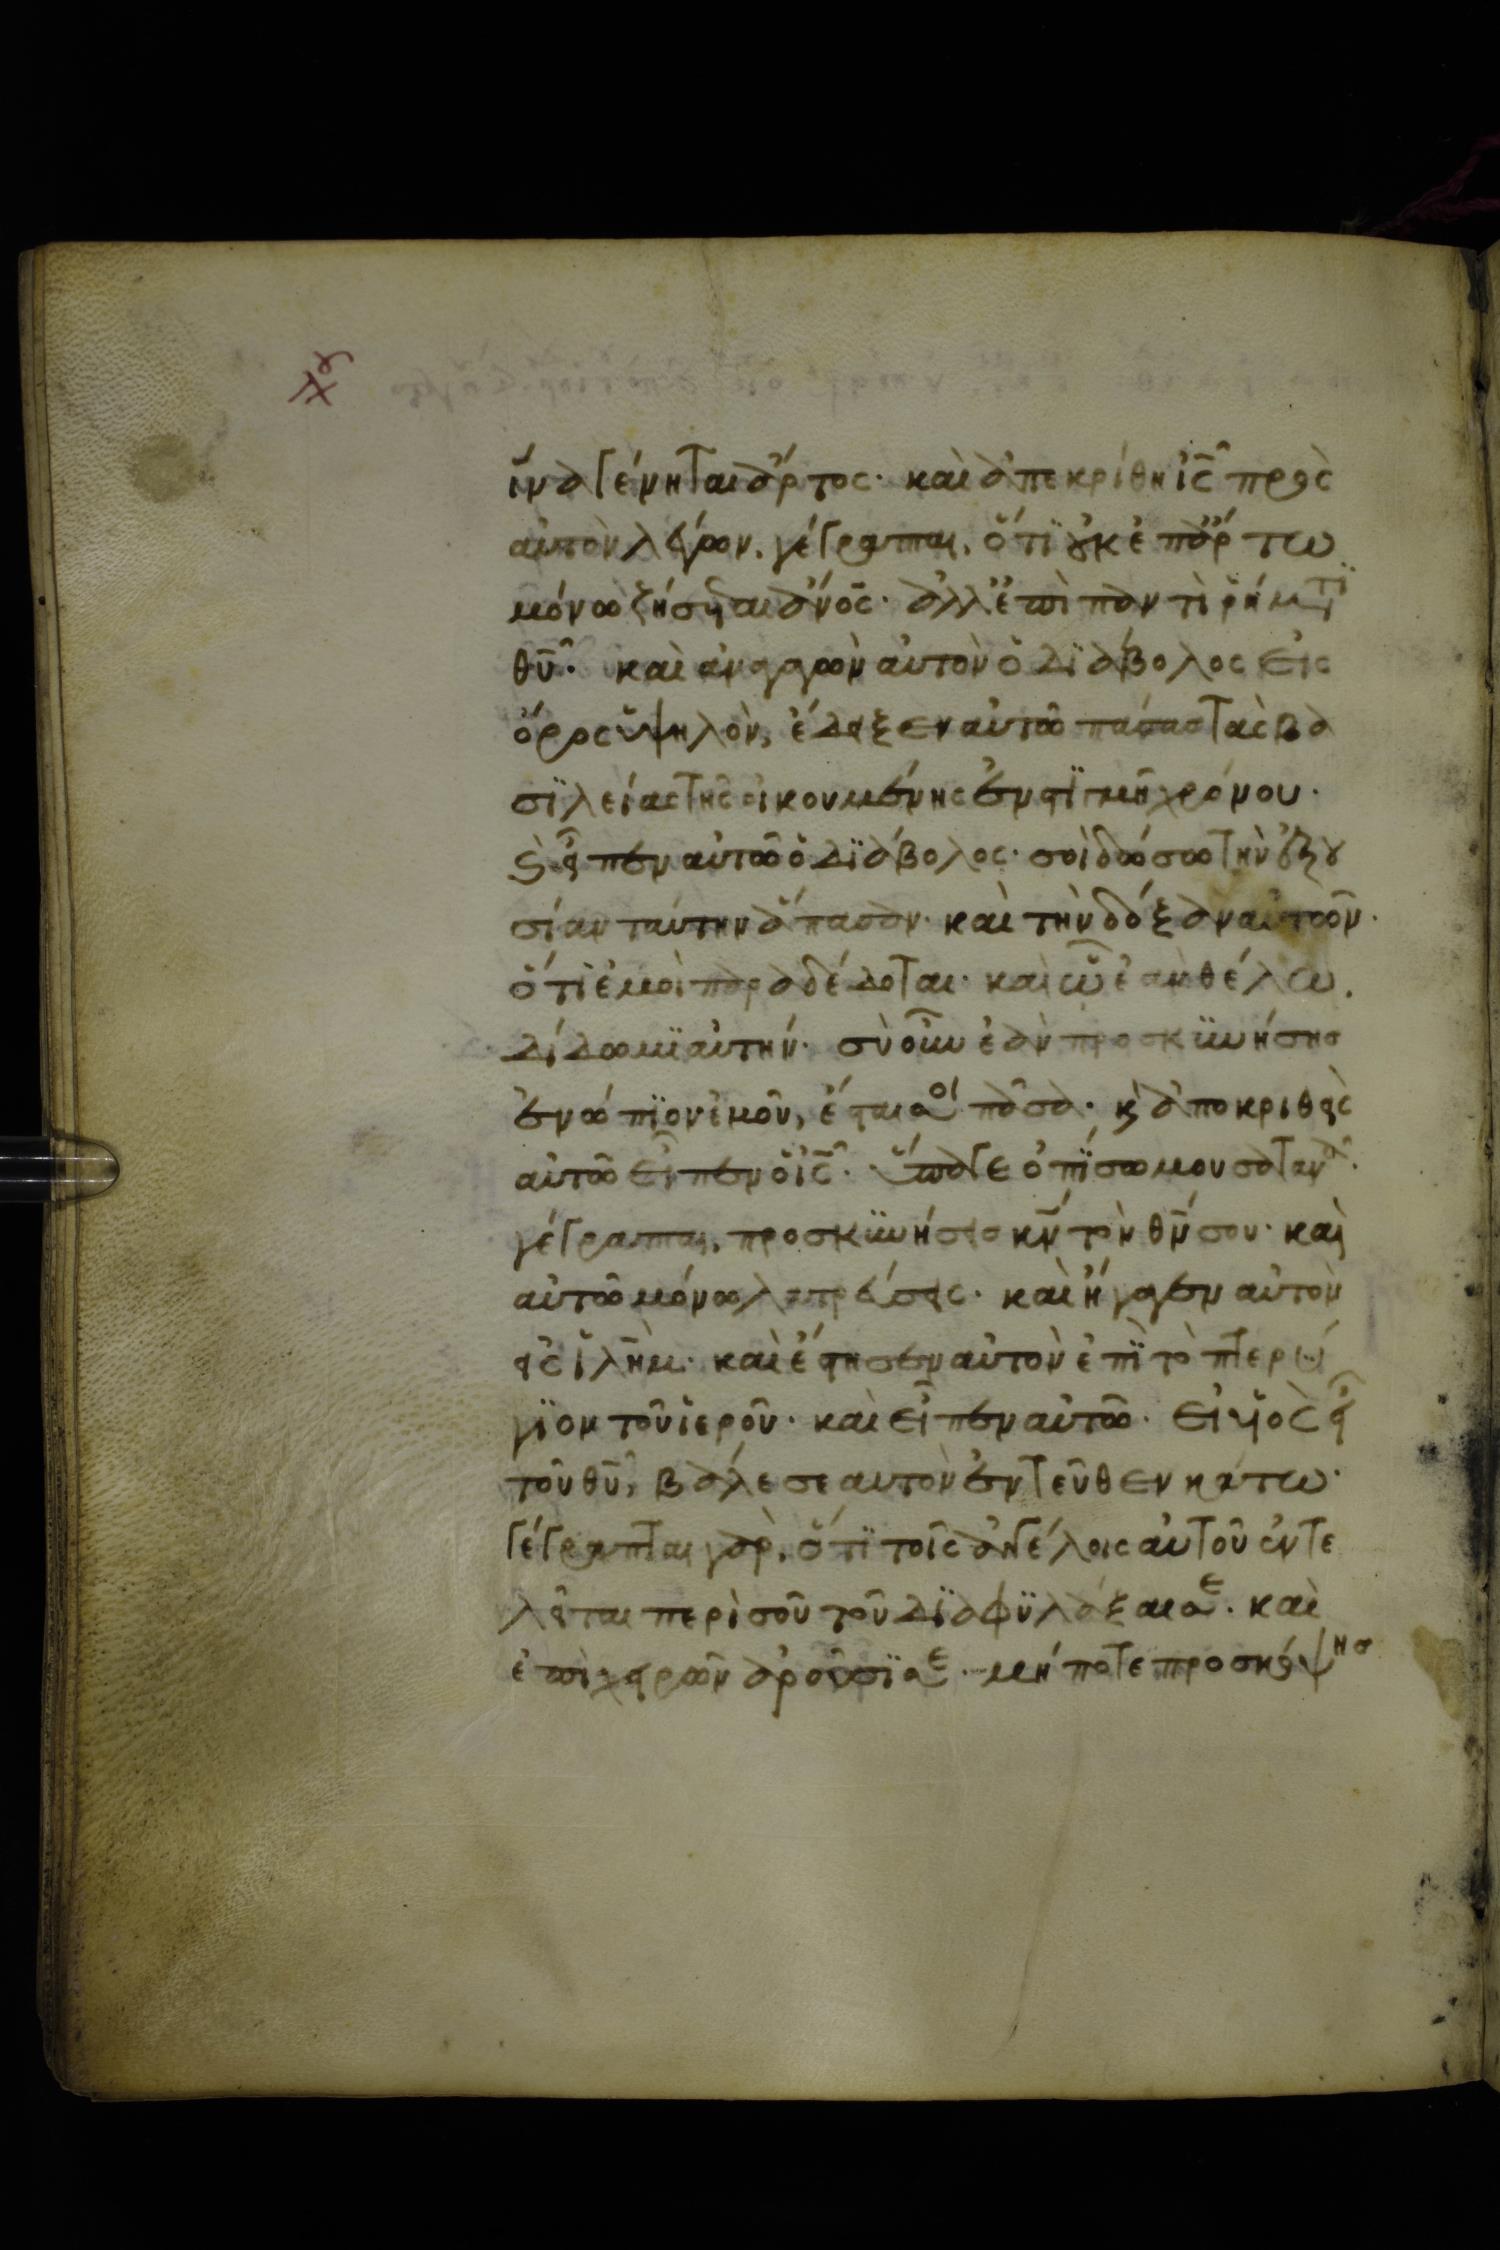 ἵνα γένηται ἄρτος· καὶ ἀπεκρίθη ἰς πρὸς
αὐτὸν λέγων, γέγραπται, ὅτι οὐκ ἐπ ἄρτω
μόνω ζήσεται ἄνος· ἀλλ ἐπὶ παντὶ ῥήματι
θυ· καὶ ἀναγαγὼν αὐτὸν ὁ διάβολος εἰς
ὄρος ὑψηλὸν, ἔδειξεν αὐτῶ πάσας τὰς βα
σιλείας τῆς οἰκουμένης ἐν στιγμῆ χρόνου·
καὶ εἶπεν αὐτῶ ὁ διάβολος· σοὶ δώσω τὴν ἐξου
σίαν ταύτην ἅπασαν· καὶ τὴν δόξαν αὐτῶν·
ὅτι ἐμοὶ παραδέδοται· καὶ ὧ ἐὰν θέλω,
δίδωμι αὐτήν· σὺ οὖν ἐὰν προσκυνήσης
ἐνώπιον ἐμοῦ, ἔσται σοι πᾶσα· κ ἀποκριθεὶς
αὐτῶ εἶπεν ὁ ἰς· ὕπαγε ὀπίσω μου σατανᾶ·
γέγραπται, προσκυνήσεις κν τὸν θν σου· καὶ
αὐτῶ μόνω λατρεύσεις· καὶ ἤγαγεν αὐτὸν
εἰς ἱλημ· καὶ ἔστησεν αὐτὸν ἐπὶ τὸ πτερύ
γιον τοῦ ἱεροῦ· καὶ εἶπεν αὐτῶ· εἰ υἱὸς εἶ
τοῦ θυ, βάλε σεαυτὸν ἐντεῦθεν κάτω·
γέγραπται γὰρ, ὅτι τοῖς ἀγγέλοις αὐτοῦ ἐντε
λεῖται περὶ σοῦ τοῦ διαφυλάξαι σε· καὶ
ἐπὶ χειρῶν ἀροῦσί σε· μήποτε προσκόψης